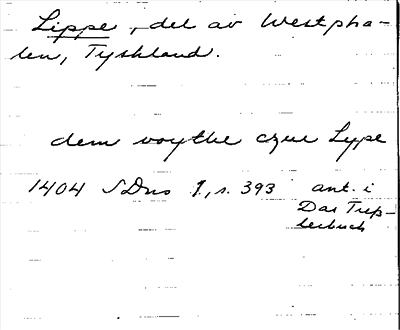 Lippe, del av Westpha-
len, Tyskland.
dem voythe czue Lype
1404 SDns 1, s. 393 ant. i
Das Trep-
lerbuch